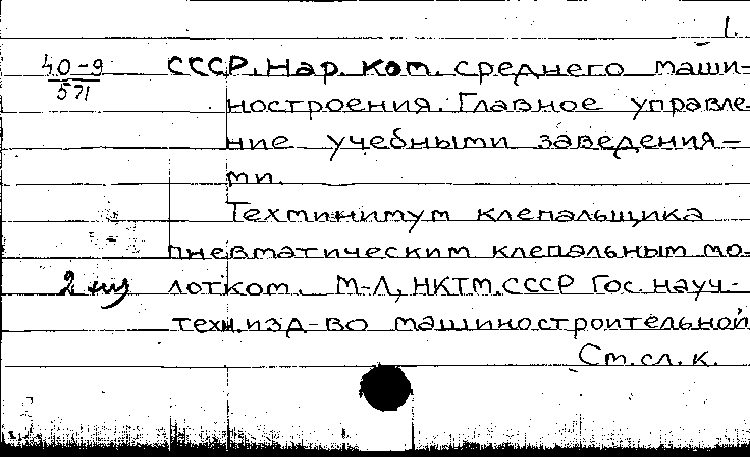 1.
40-9
571
СССР. Нар. Ком. среднего маши-
ностроения. Главное управле
ние учебными заведения-
ми.
Техминимум клепальщика
пневматическим клепальным мо
2
лотком. М-Л, НКТМ.СССР Гос. науч.-
техн.изд-во машиностроительной
См.сл.к.